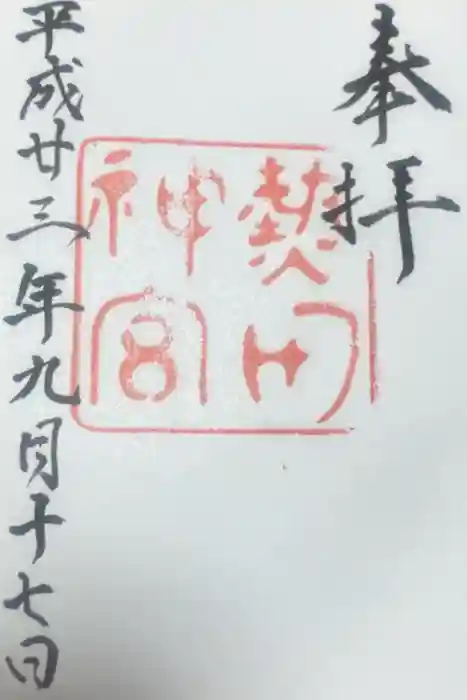 奉拝
熱田
神宮
平成廿三年九月十七日